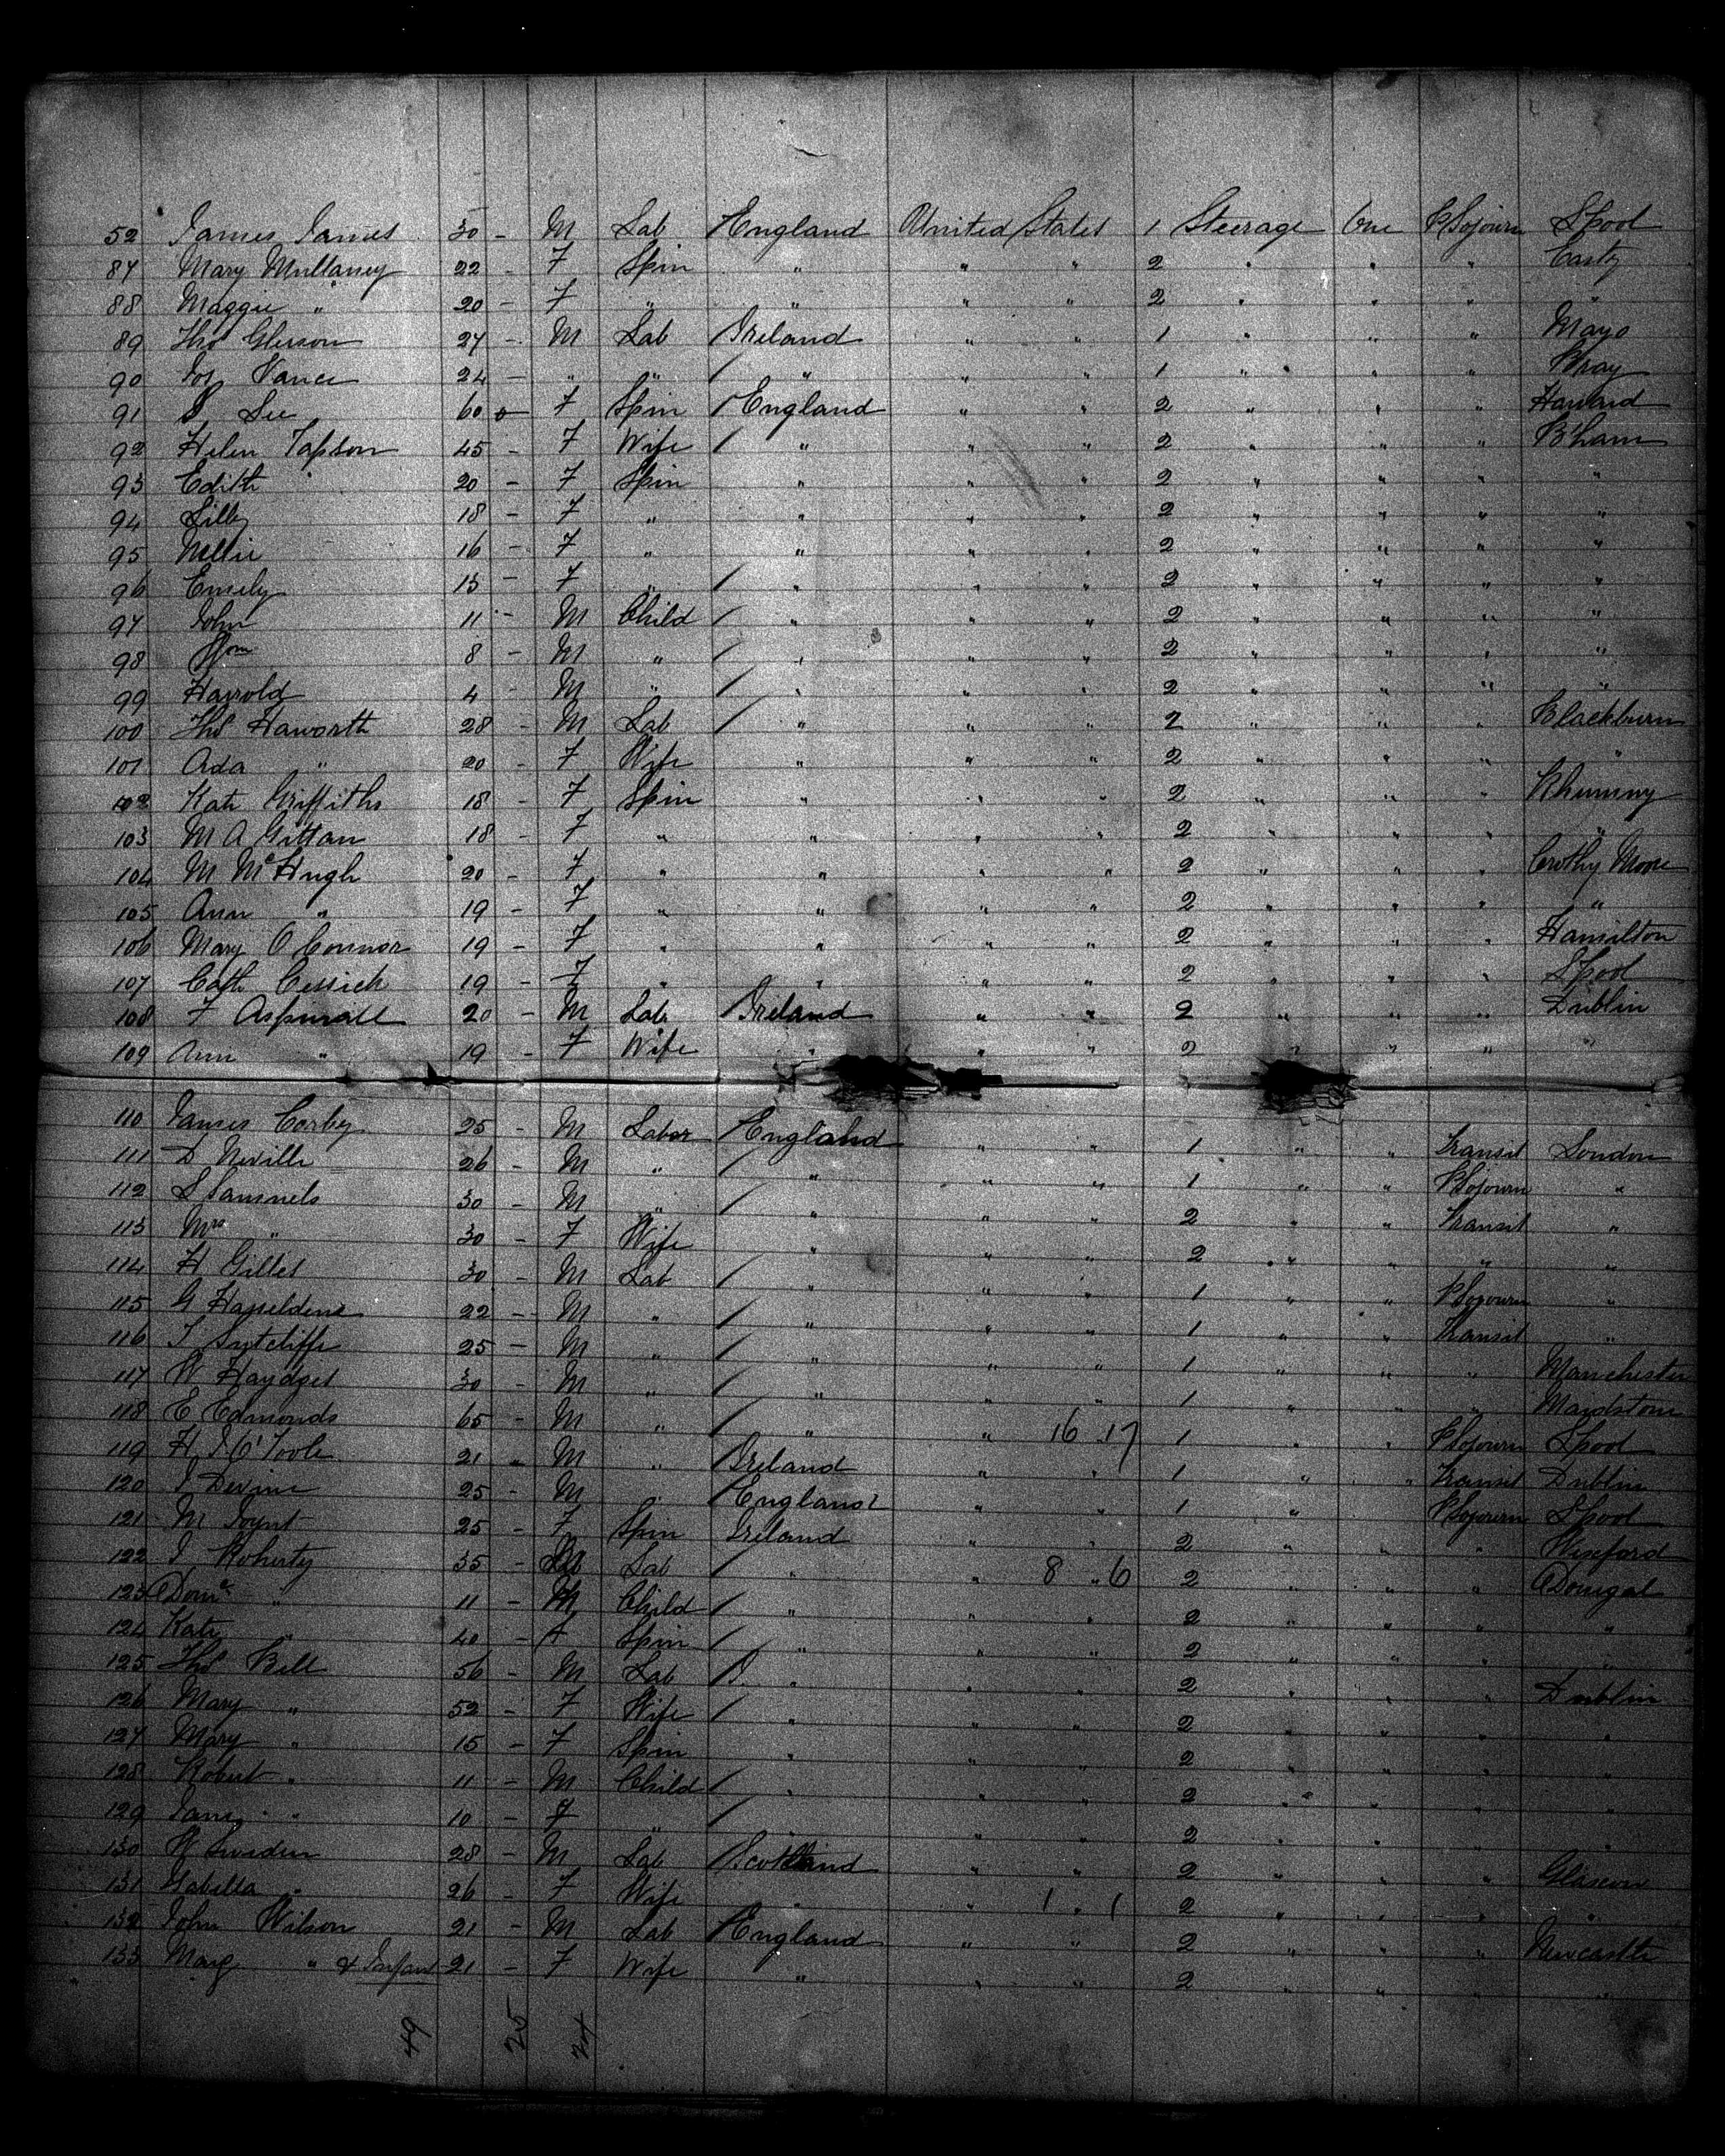 52 James James 30 - M Lab England United States 1 Steerage One P Sojourn L'pool
87 Mary Mullaney 22 - F Spin " " " 2 " " " Castg
88 Maggie " 20 - F " " " " 2 " " " "
89 Thos Gleeson 27 - M Lab Ireland " " 1 " " " Mayo
90 Jos Vance 24 - " " " " " 1 " " " Bray
91 S Lee 60 - F Spin England " " 2 " " " Harvard
92 Helen Tapson 45 - F Wife " " " 2 " " " B'ham
93 Edith 20 - F Spin " " " 2 " " " "
94 Lilly 18 - F " " " " 2 " " " "
95 Nellie 16 - F " " " " 2 " " " "
96 Emily 15 - F " " " " 2 " " " "
97 John 11 - M Child " " " 2 " " " "
98 Wm 8 - M " " " " 2 " " " "
99 Harrold 4 - M " " " " 2 " " " "
100 Thos Haworth 28 - M Lab " " " 2 " " " Blackburn
101 Ada " 20 - F Wife " " " 2 " " " "
102 Kate Griffiths 18 - F Spin " " " 2 " " " Rhumny
103 M A Gittan 18 - F " " " " 2 " " " "
104 M McHugh 20 - F " " " " 2 " " " Moore
105 Ann " 19 - F " " " " 2 " " " "
106 Mary O Connor 19 - F " " " " 2 " " " Hamilton
107 Cath Cessich 19 - F " " " " 2 " " " L'pool
108 F Aspinall 20 - M Lab Ireland " " 2 " " " Dublin
109 Ann " 19 - F Wife " " " 2 " " " "
110 James Corby 25 - M Labor England " " 1 " " Transit London
111 D Neville 26 - M " " " " 1 " " P Sojourn "
112 S Samuels 30 - M " " " " 2 " " Transit "
113 Mrs " 30 - F Wife " " " 2 " " " "
114 H Gilles 30 - M Lab " " " 1 " " P Sojourn "
115 G Hasseldene 22 - M " " " " 1 " " Transit "
116 T Sutcliffe 25 - M " " " " 1 " " " Manchester
117 W Haydges 30 - M " " " " 1 " " " Maidstone
118 E Edmonds 65 - M " " " 16 17 1 " " P Sojourn L'pool
119 H J O'Toole 21 " M " Ireland " " 1 " " Transit Dublin
120 J Devine 25 - M " England " " 1 " P Sojourn L'pool
121 M Joynt 25 - F Spin Ireland " " 2 " " " Wexford
122 J Doherty 35 - M Lab " " 8 " 6 2 " " " Donegal
123 Domk " 11 - M Child " " " 2 " " " "
124 Kate " 40 - F Spin " " " 2 " " " "
125 Thos Bell 56 - M Lab " " " 2 " " " Dublin
126 Mary " 52 - F Wife " " " 2 " " " "
127 Mary " 15 - F Spin " " " 2 " " " "
128 Robert " 11 - M Child " " " 2 " " " "
129 Jane " 10 - F " " " 2 " " " "
130 W 28 - M Lab Scotland " " 2 " " " Glascow
131 Isabella " 26 - F Wife " " 1 " 1 2 " " " "
132 John Wilson 21 - M Lab England " " 2 " " " Newcastle
133 Marg " & Infant 21 - F Wife " " " 2 " " " "
49 25 24